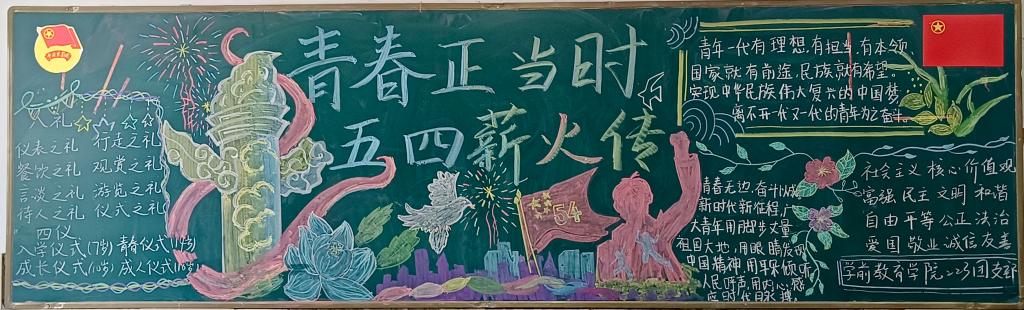 青春正当时
五四薪火传
八礼
仪表之礼 行走之礼
餐饮之礼 观赏之礼
言谈之礼 游览之礼
待人之礼 仪式之礼
四仪
入学仪式(7岁) 青春仪式
成长仪式(10岁) 成人仪式
54
青年一代有理想、有担当、有本领,
国家就有前途,民族就有希望。
实现中华民族伟大复兴的中国梦,
离不开一代又一代的青年为之奋斗。
青春无边,奋斗以成
新时代新征程,广
大青年用脚步丈量
祖国大地,用眼睛发现
中国精神,用耳朵倾听
人民呼声,用内心感
应时代脉搏
社会主义核心价值观
富强 民主 文明 和谐
自由 平等 公正 法治
爱国 敬业 诚信 友善
学前教育学院223团支部